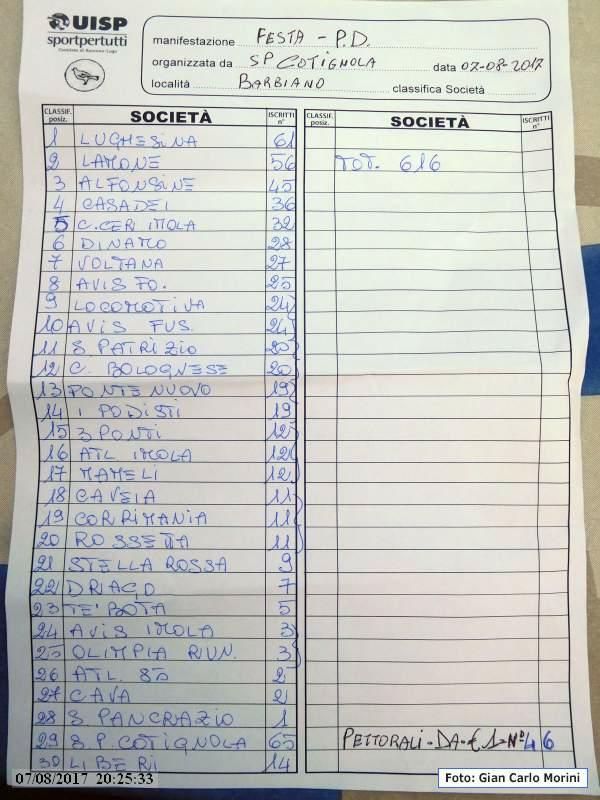 UISP
sportpertutti
Comitato di Ravenna-Lugo
manifestazione FESTA - P.D.
organizzata da SP COTIGNOLA data 07-08-2017
località BARBIANO classifica Società
CLASSIF. posiz. SOCIETÀ ISCRITTI n° CLASSIF. posiz. SOCIETÀ ISCRITTI n°
1 LUGHESINA 61
2 LAMONE 56 TOT. 616
3 ALFONSINE 45
4 CASADEI 36
5 C.CERI IMOLA 32
6 DINAMO 28
7 VOLTANA 27
8 AVIS FO. 25
9 LOCOMOTIVA 24
10 AVIS FUS. 24
11 S. PATRIZIO 20
12 C. BOLOGNESE 20
13 PONTE NUOVO 19
14 I PODISTI 19
15 3 PONTI 12
16 ATL IMOLA 12
17 MAMELI 12
18 CAVEIA 11
19 CORRIMANIA 11
20 ROSSETTA 11
21 STELLA ROSSA 9
22 DRAGO 7
23 TE' BOTA 5
24 AVIS IMOLA 3
25 OLIMPIA RIUN. 3
26 ATL. 85 2
27 CAVA 2
28 S. PANCRAZIO 1
29 S.P. COTIGNOLA 65 PETTORALI - DA - € 1 - N° 46
30 LIBERI 14
07/08/2017 20:25:33
Foto: Gian Carlo Morini